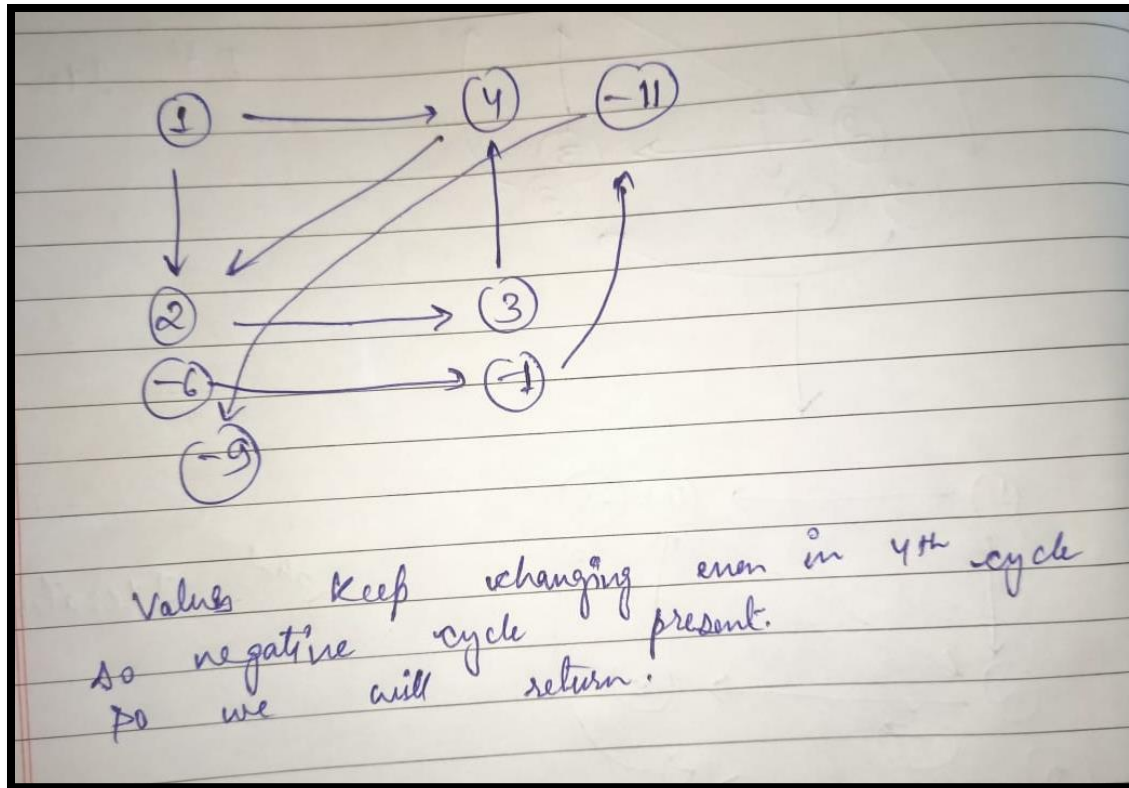 1 4 -11
2 3
-6 -1
-9
Values keep changing even in 4th cycle
so negative cycle present.
so we will return.